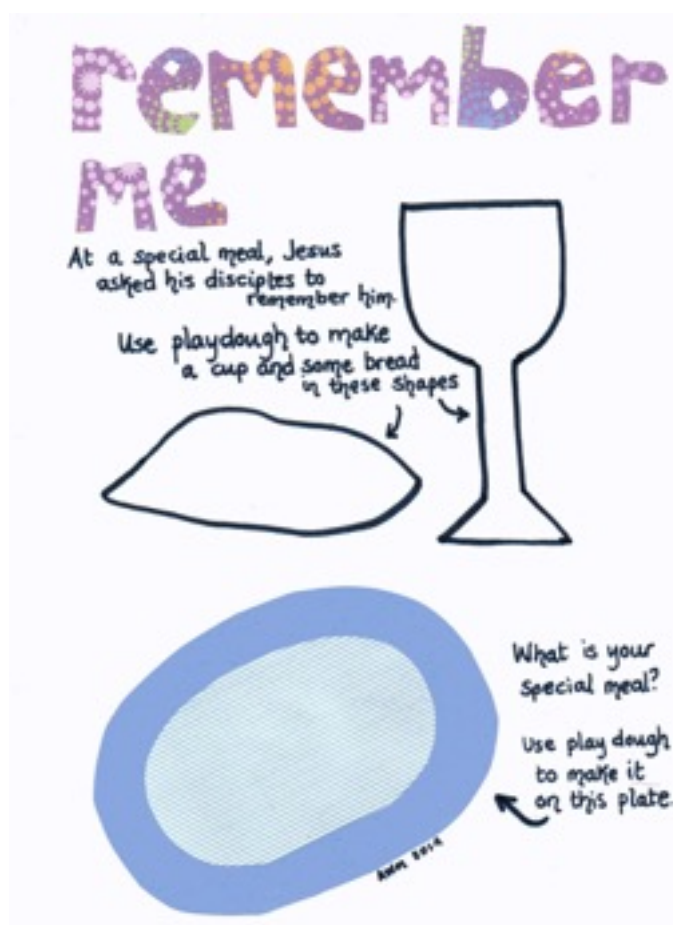 remember
me
At a special meal, Jesus
asked his disciples to
remember him.
Use playdough to make
a cup and some bread
in these shapes
What is your
special meal?
Use play dough
to make it
on this plate.
2014